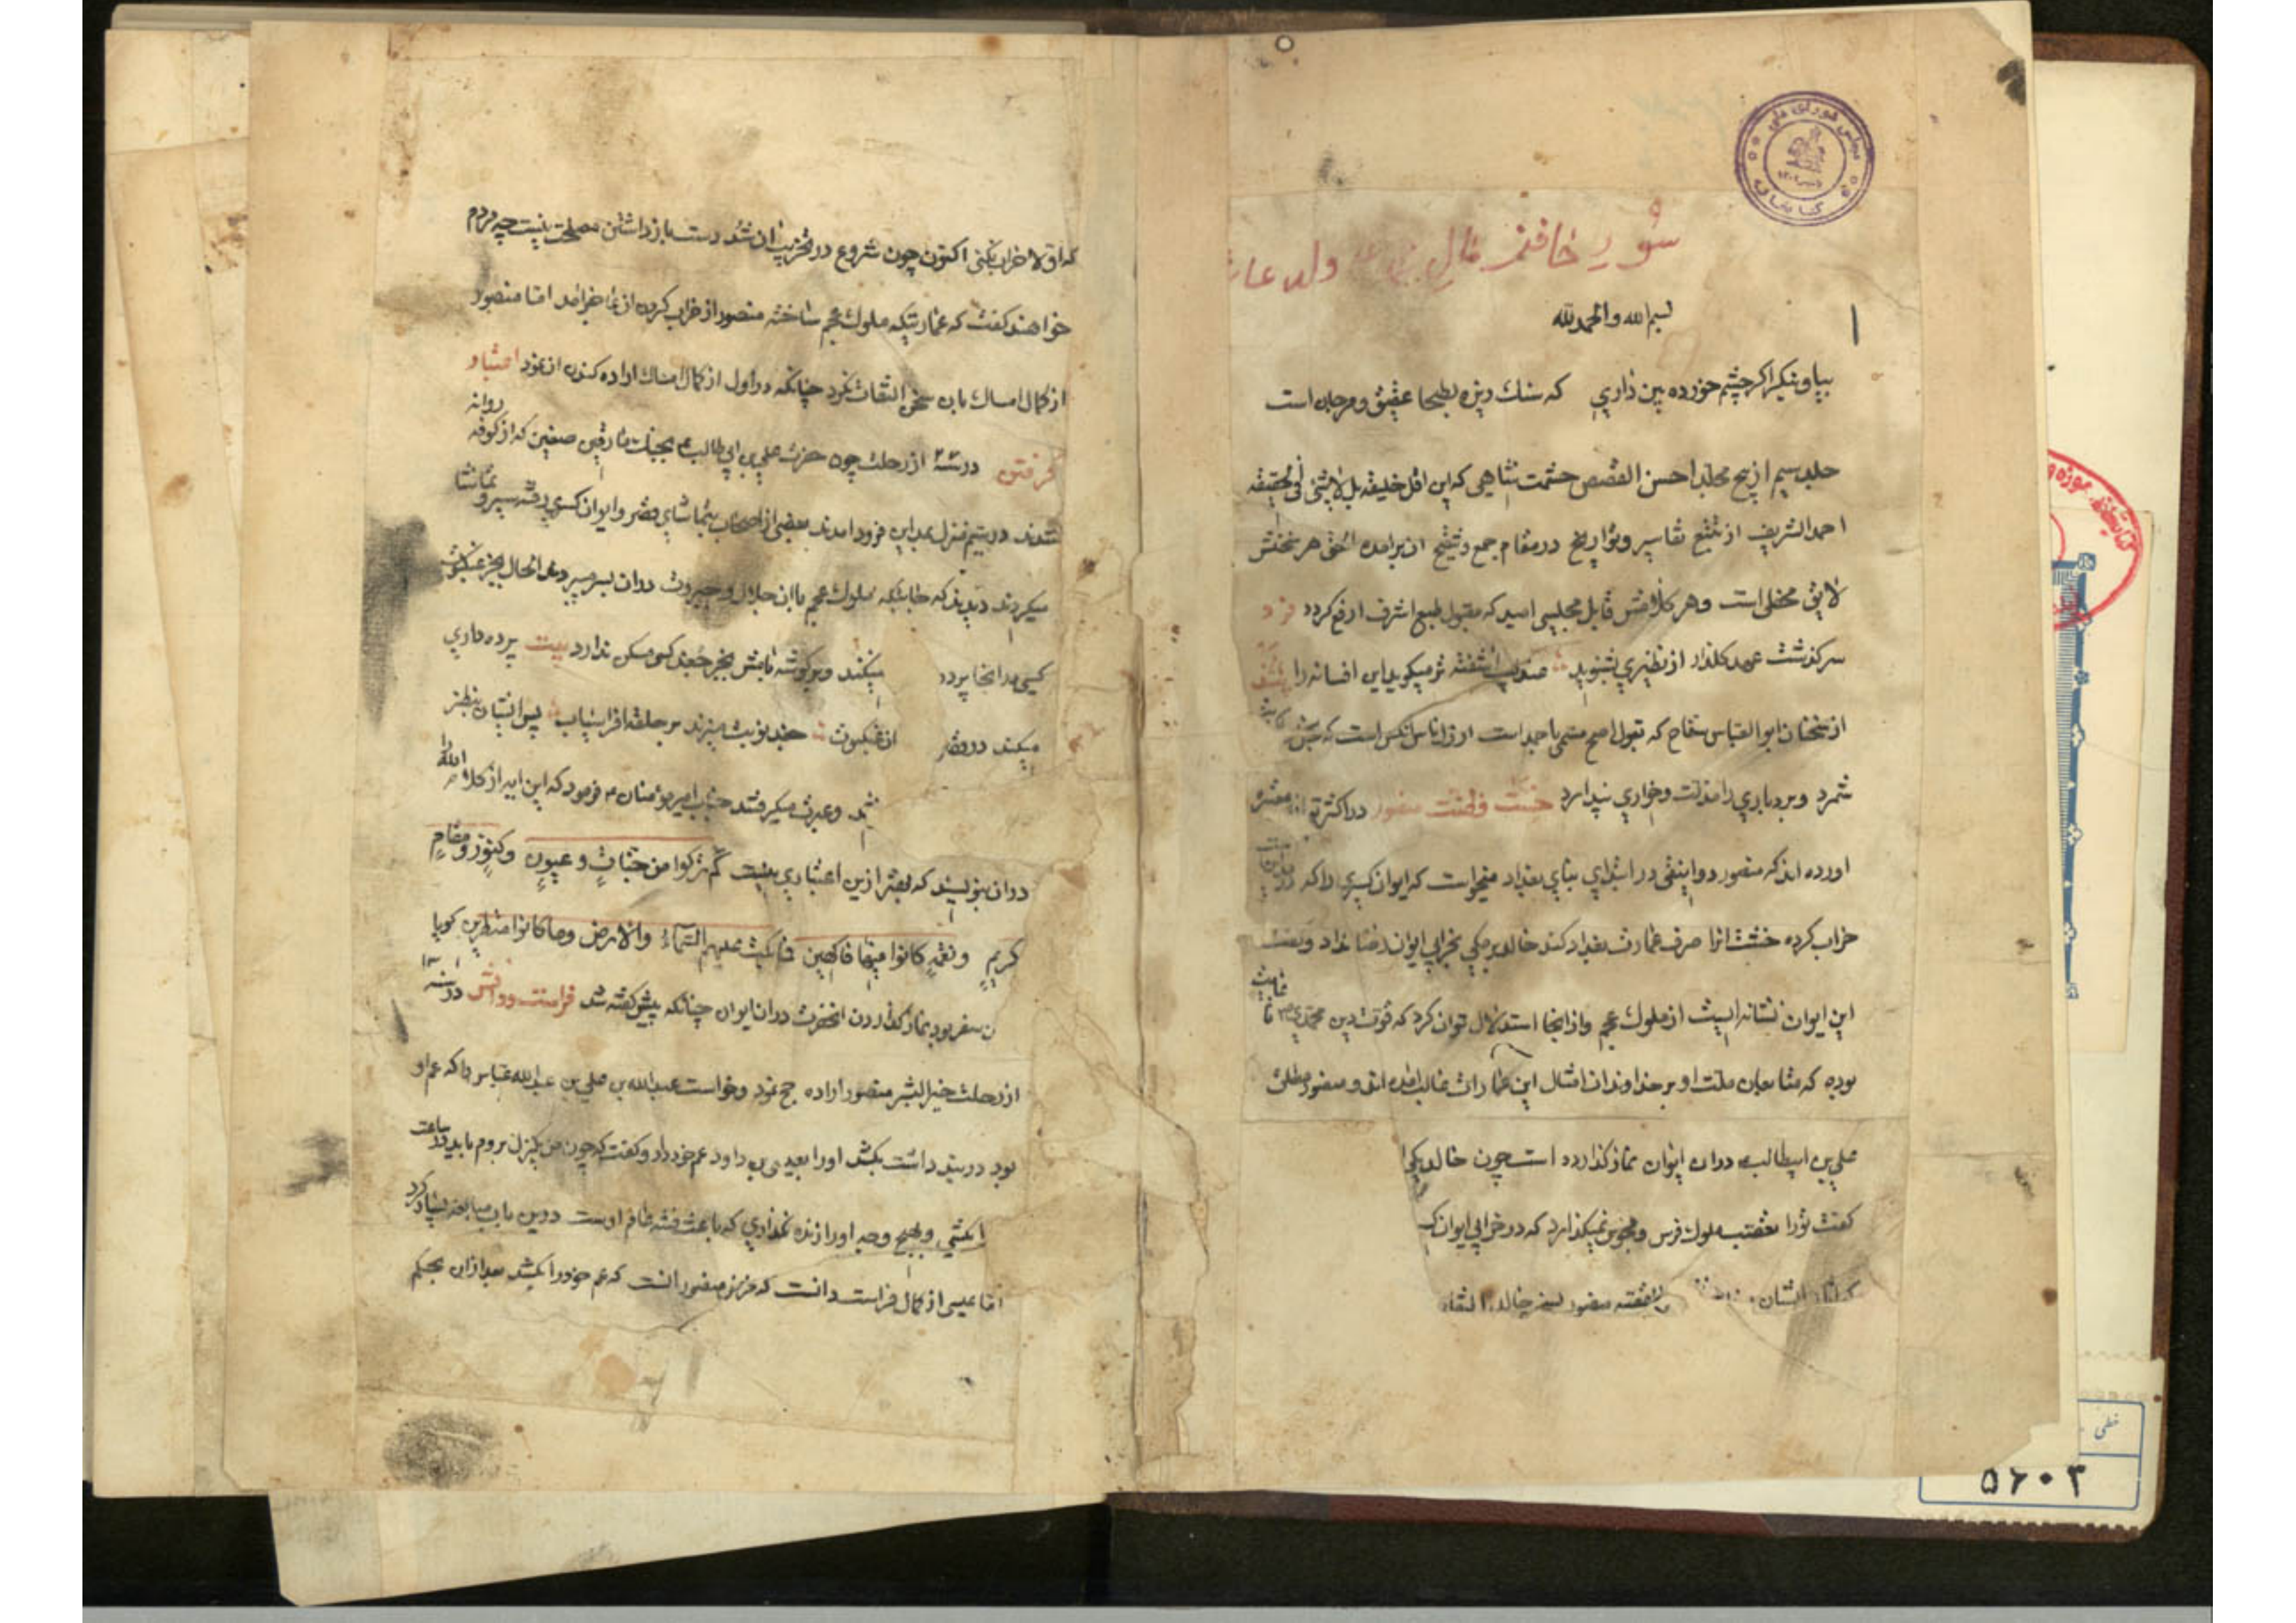 بسم الله والحمد لله
بیا و بنگر اگر چشم خورده بین داری که سنك ریزه بطحا عقیق و مرجان است
جلد سیم از پنج مجلد احسن القصص حشمت شاهی که این اقل خلیقه بل لاشئ فی الحقیقه
احمد الشریف از تتبع تفاسیر و تواریخ در مقام جمع و تنقیح ان برامده الحق هر سخنش
لایق محفلی است و هر کلامش قابل مجلسی امید که مقبول طبع اشرف ارفع کردد فرد
سرکذشت عهد کل را از نظیری بشنوید عندلیب اشفته تر میکوید این افسانه را
از سخنان ابوالعباس سفاح که بقول اصح مسمی باحمد است ارذل ناس انکس است که
شمرد و بردباری را مذلت و خواری پندارد خست فطنت منصور در اکثر
اورده اند که منصور دوانیقی در ابتدای بنای بغداد میخواست که ایوان کسری را که در مداین
خراب کرده خشت انرا صرف عمارت بغداد کند خالد برمکی بخرابی ایوان رضا نداد و گفت
این ایوان نشانه ایست از ملوك عجم و از اینجا استدلال توان کرد که قوت دین محمدی تا
بوده که متابعان ملت او بر خداوندان امثال این عمارات غالب امده اند و منصور مطلق
علی بن ابیطالب دران ایوان نماز کذارده است چون خالد
کفت ترا تعصب ملوك فرس و مجوس نمیکذارد که در خرابی ایوان
ایشان منصور بسخن خالد
که اولا خراب نکنی اکنون چون شروع در تخریب ان شد دست باز داشتن مصلحت نیست چه مردم
خواهند کفت که عمارتیکه ملوك عجم ساخته منصور از خراب کردن ان عاجز امد اما منصور
از کمال امساك باین سخن التفات نکرد چنانکه در اول از کمال امساك اراده کندن ان نمود اعتبار
کرفتن در سنه از رحلت چون حضرت علی بن ابی طالب بجنك مارقین صفین که از کوفه روانه
شدند در بیتم منزل بمداین فرود امدند بعضی از اصحاب بتماشای قصر و ایوان کسری رفته سیر و تماشا
میکردند دیدند که خانه‌ای که ملوك عجم با ان جلال و جبروت دران بسر میبردند الحال بجز عنکبوت
کسی در انجا پرده میکند و بر کوشه بامش بجز جغد کسی مسکن ندارد بیت پرده داری
میکند در قصر از عنکبوت جغد نوبت میزند بر جلقه افراسیاب پس ایشان بنظر
شد و عبرت میکرفتند جناب امیر مومنان فرمود که این ایه از کلام الله را
دران بنویسید که بهتر ازین اعتباری نیست کم ترکوا من جنات و عیون و کنوز و مقام
کریم و نعمة کانوا فیها فاکهین فما بکت علیهم السماء والارض وما کانوا منظرین کویا
سفر بود نماز کذاردن انحضرت دران ایوان چنانکه پیش کفته شد فراست در سنه
از رحلت خیر البشر منصور اراده حج نمود و خواست عبدالله بن علی بن عبدالله عباس را که عم او
بود در بند داشت بکشد او را بعیسی بن داود عم خود داد و کفت که چون من یکمنزل بروم باید در ساعت
را بکشی و بهیچ وجه او را زنده نکذاری که باعث فتنه عالم اوست درین باب مبالغه بسیار کرد
اما عیسی از کمال فراست دانست که غرض منصور انست که عم خود را بکشد بعد ازان بحکم
۵۶۰۳
خطی